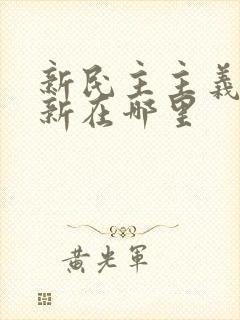 新民主主義
新在哪里
黄光軍